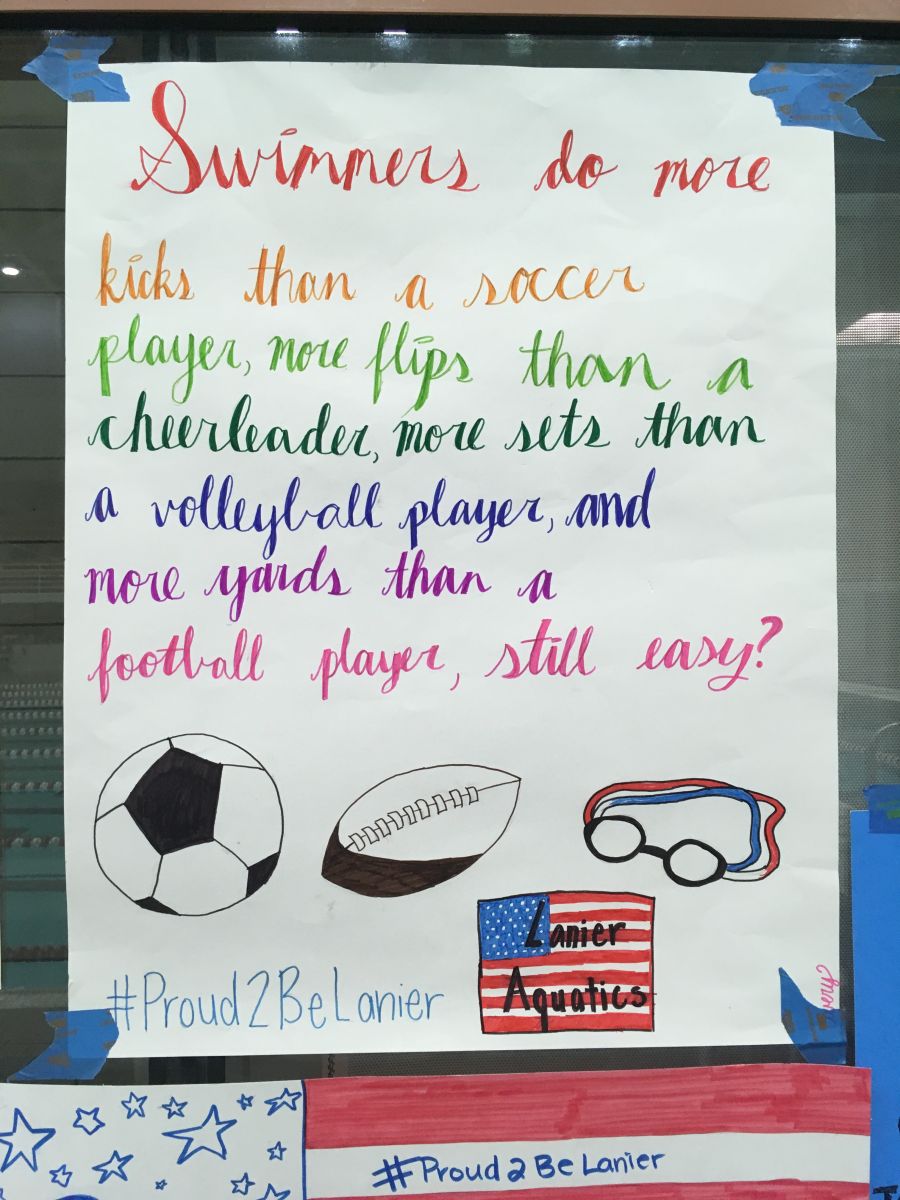 Swimmers do more
kicks than a soccer
player, more flips than a
cheerleader, more sets than
a volleyball player, and
more yards than a
football player, still easy?
Lanier
Aquatics
#Proud2BeLanier
#Proud2BeLanier